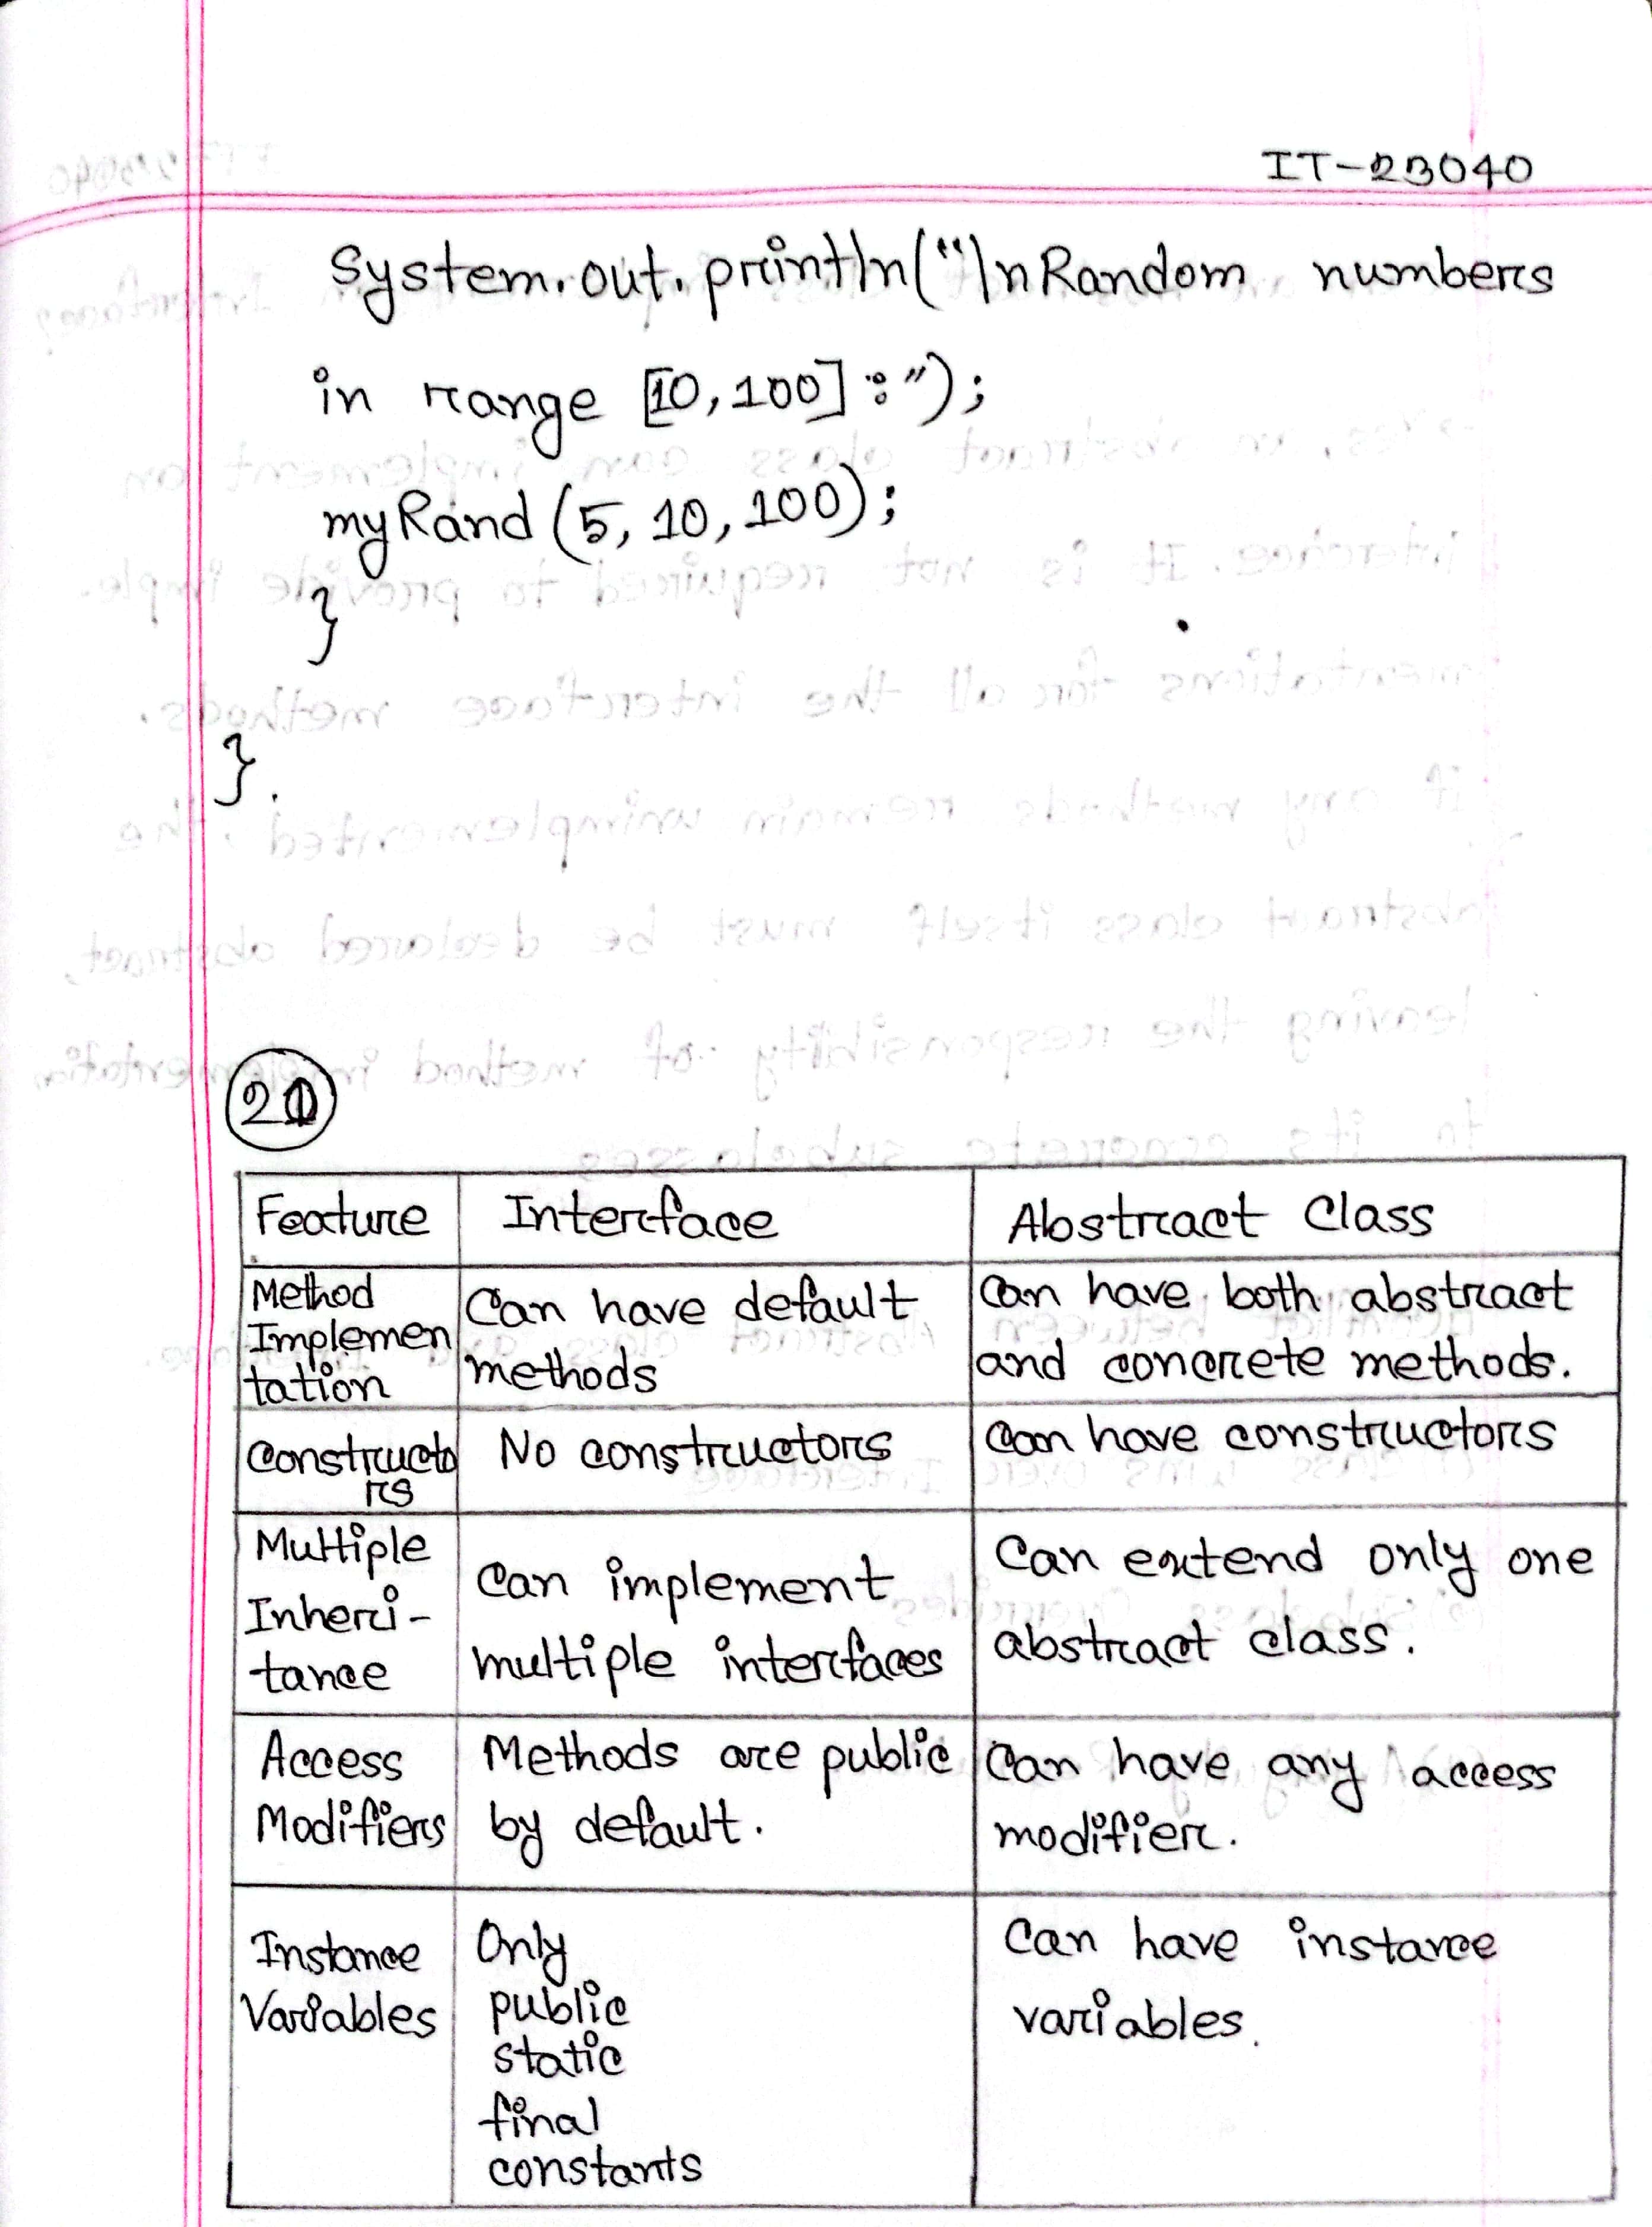 IT-23040
System.out.println("\nRandom numbers
in range [10,100]:");
myRand (5, 10, 100);
}
}.
Feature Interface Abstract Class
Method
Implemen
tation
Can have default
methods
Can have both abstract
and concrete methods.
Constructo
rs
No constructors
Can have constructors
Multiple
Inheri-
tance
Can implement
multiple interfaces
Can extend only one
abstract class.
Access
Modifiers
Methods are public
by default.
Can have any access
modifier.
Instance
Variables
Only
public
static
final
constants
Can have instance
variables.